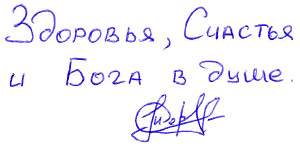 Здоровья, Счастья
и Бога в душе.